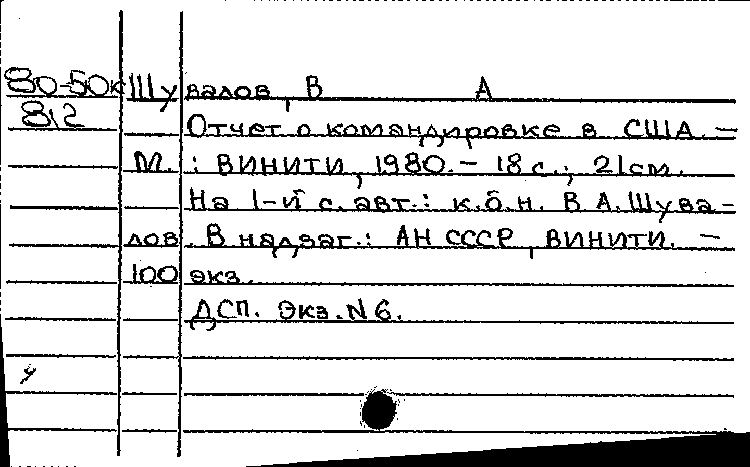 80-50к Шувалов, В А
812 Отчет о командировке в США. —
М. : ВИНИТИ, 1980. — 18 с.; 21 см.
На 1-й с. авт.: к.б.н. В А. Шува-
лов. В надзаг.: АН СССР, ВИНИТИ. —
100 экз.
ДСП. Экз. N 6.